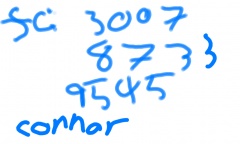 sc 3007
8733
9545
connor